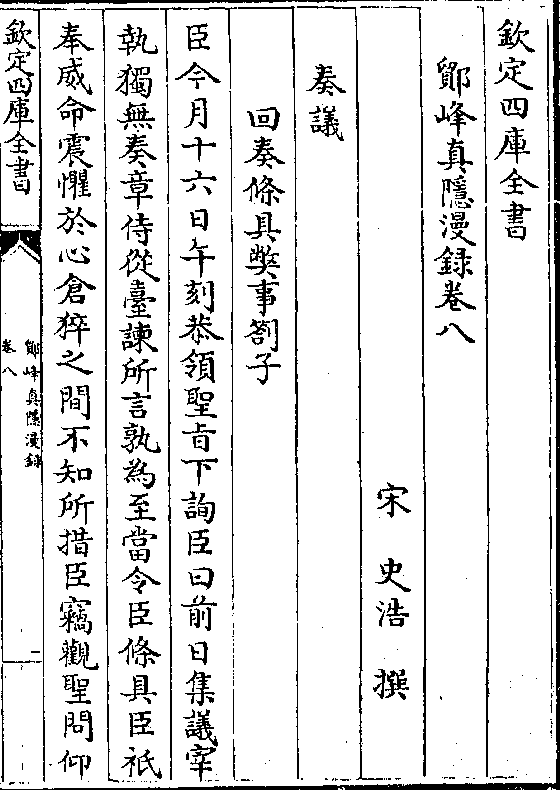 欽定四庫全書
鄮峰真隱漫錄卷八
宋 史浩 撰
奏議
回奏條具弊事劄子
臣今月十六日午刻恭領聖旨下詢臣曰前日集議宰
執獨無奏章侍從臺諫所言孰為至當令臣條具臣祇
奉威命震懼於心倉猝之間不知所措臣竊觀聖問仰
欽定四庫全書
鄮峰真隱漫錄
卷八
一